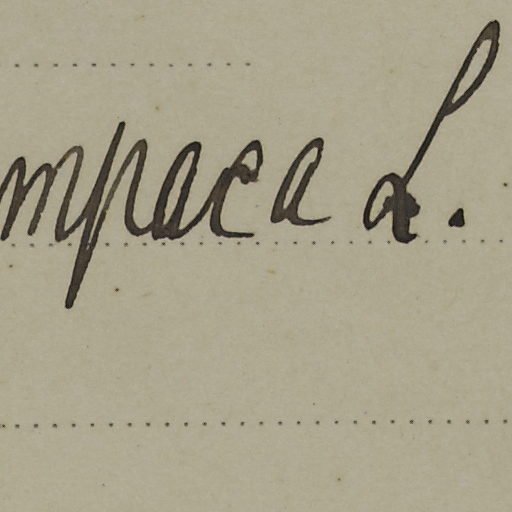 mpaca L.